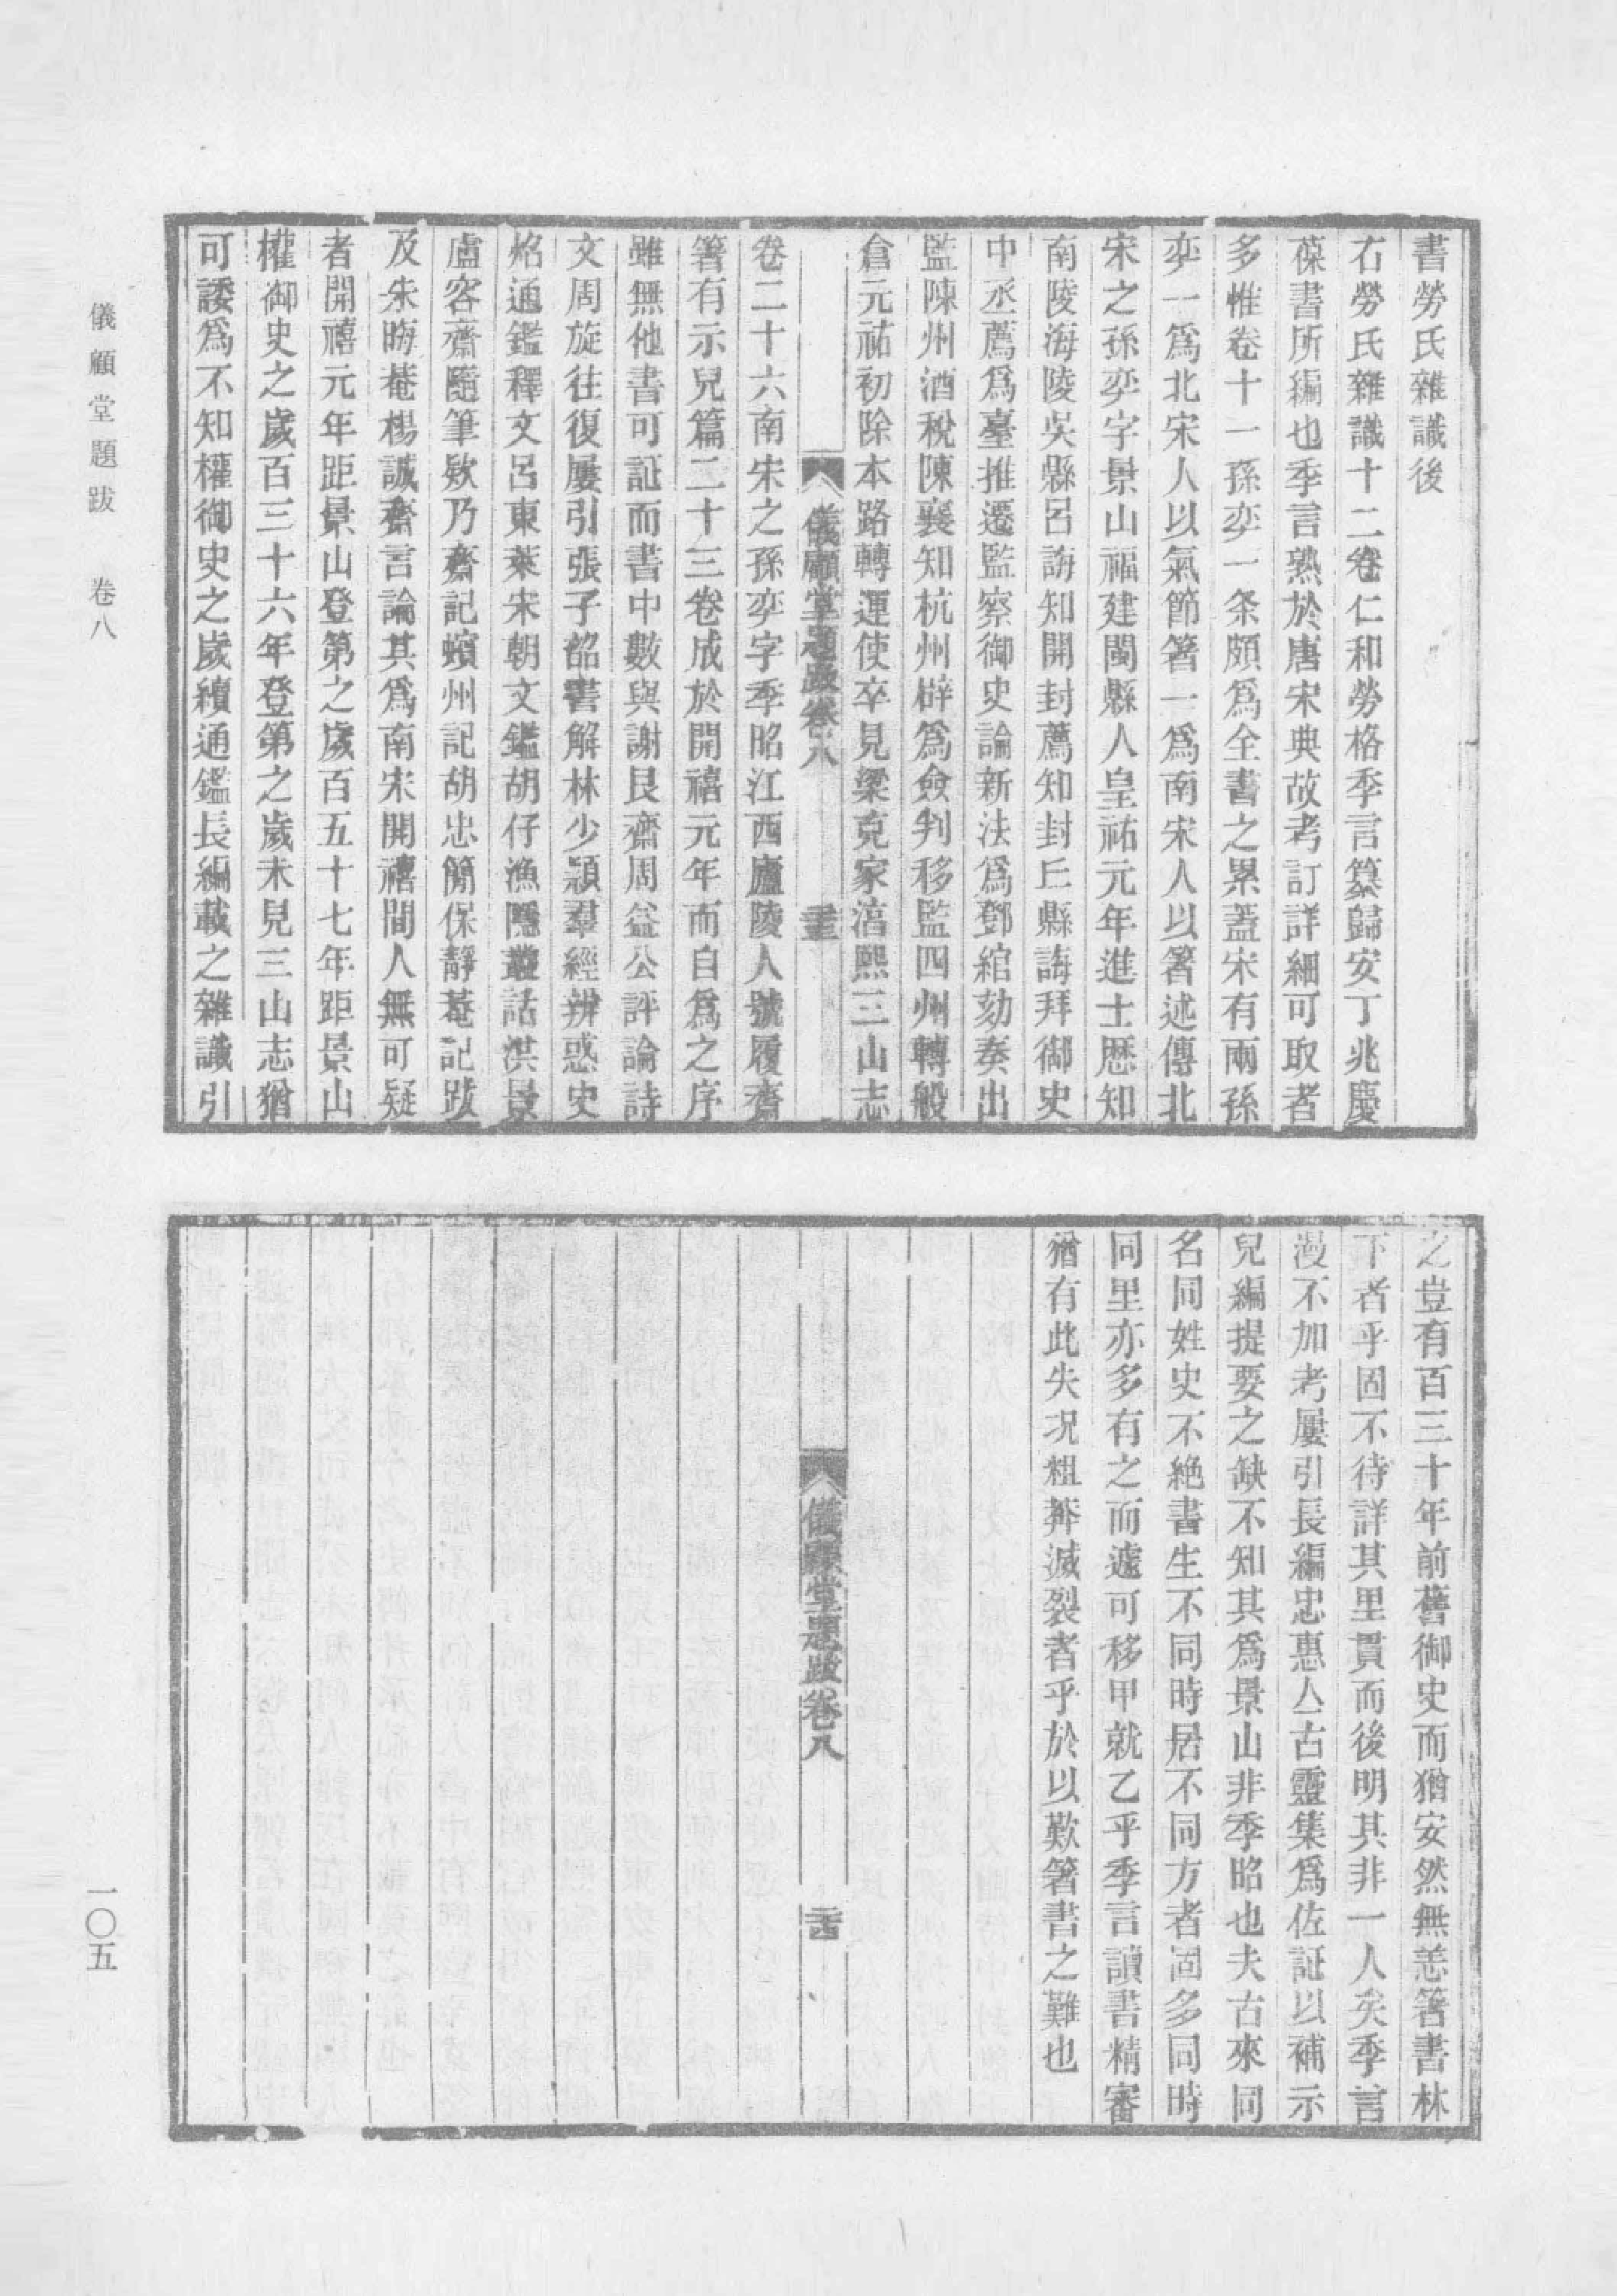 書勞氏雜識後
右勞氏雜識十二卷仁和勞格季言纂歸安丁兆慶
葆書所編也季言熟於唐宋典故考訂詳細可取者
多惟卷十一孫奕一条頗爲全書之累蓋宋有兩孫
奕一爲北宋人以氣節箸一爲南宋人以箸述傳北
宋之孫奕字景山福建閩縣人皇祐元年進士歷知
南陵海陵吳縣呂誨知開封薦知封丘縣誨拜御史
中丞薦爲臺推遷監察御史論新法爲鄧綰劾奏出
監陳州酒稅陳襄知杭州辟爲僉判移監四州轉般
倉元祐初除本路轉運使卒見梁克家淳熙三山志
儀顧堂題跋卷八
卷二十六南宋之孫奕字季昭江西廬陵人號履齋
箸有示兒篇二十三卷成於開禧元年而自爲之序
雖無他書可証而書中數與謝艮齋周益公評論詩
文周旋往復屢引張子韶書解林少穎羣經辨惑史
炤通鑑釋文呂東萊宋朝文鑑胡仔漁隱叢話洪景
盧容齋隨筆欵乃齋記蠙州記胡忠簡保靜菴記跋
及朱晦菴楊誠齋言論其爲南宋開禧間人無可疑
者開禧元年距景山登第之歲百五十七年距景山
權御史之歲百三十六年登第之歲未見三山志猶
可諉爲不知權御史之歲續通鑑長編載之雜識引
之豈有百三十年前舊御史而猶安然無恙箸書林
下者乎固不待詳其里貫而後明其非一人矣季言
漫不加考屢引長編忠惠公古靈集爲佐証以補示
兒編提要之缺不知其爲景山非季昭也夫古來同
名同姓史不絕書生不同時居不同方者固多同時
同里亦多有之而遽可移甲就乙乎季言讀書精審
猶有此失况粗莽滅裂者乎於以歎箸書之難也
儀顧堂題跋卷八
儀顧堂題跋 卷八
一〇五